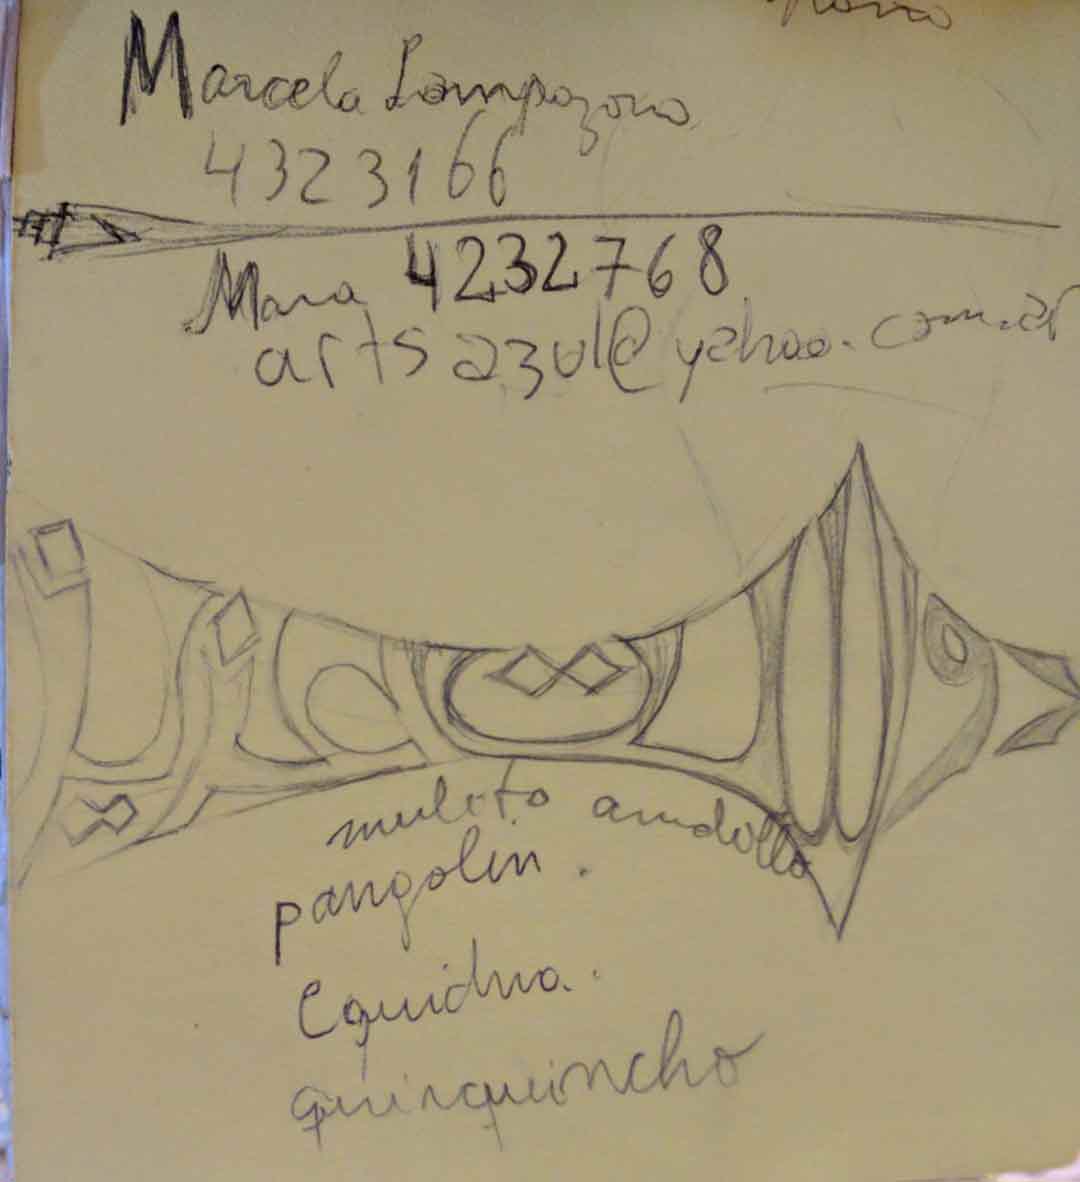 Marcela Lampazona
4323166
Mara 4232768
artsazul@yahoo.com.ar
mulita
pangolin.
Equidna.
quirquincho